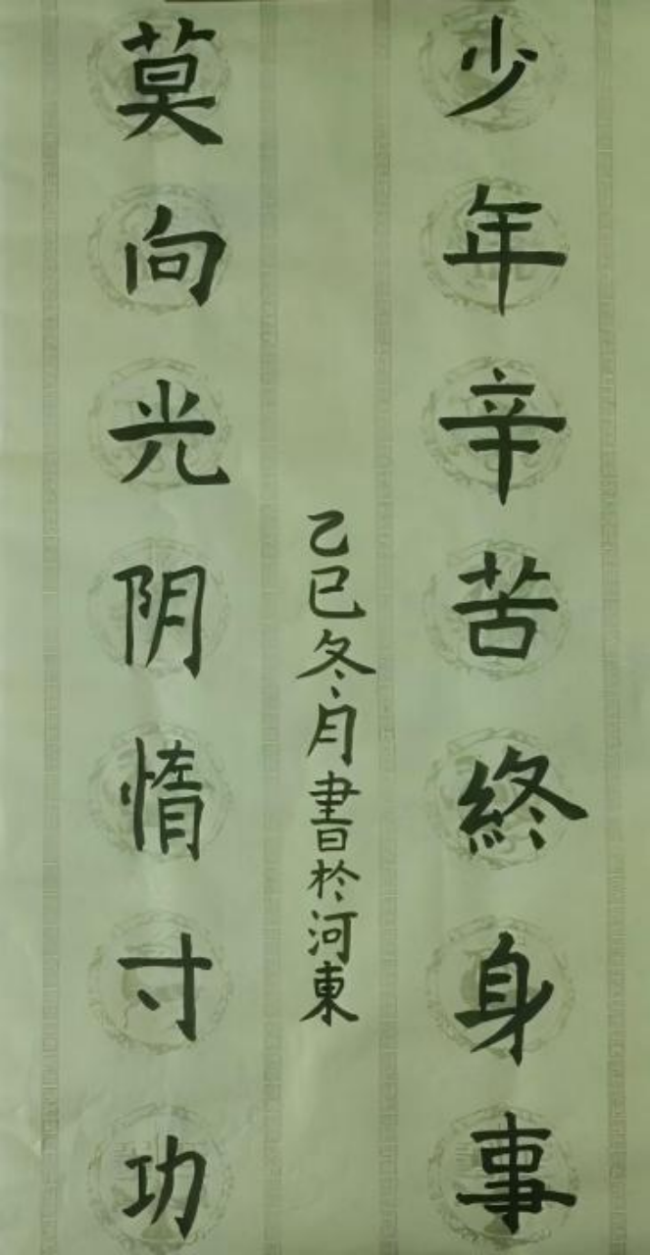 少年辛苦終身事
莫向光阴惰寸功
乙巳冬月書於河東